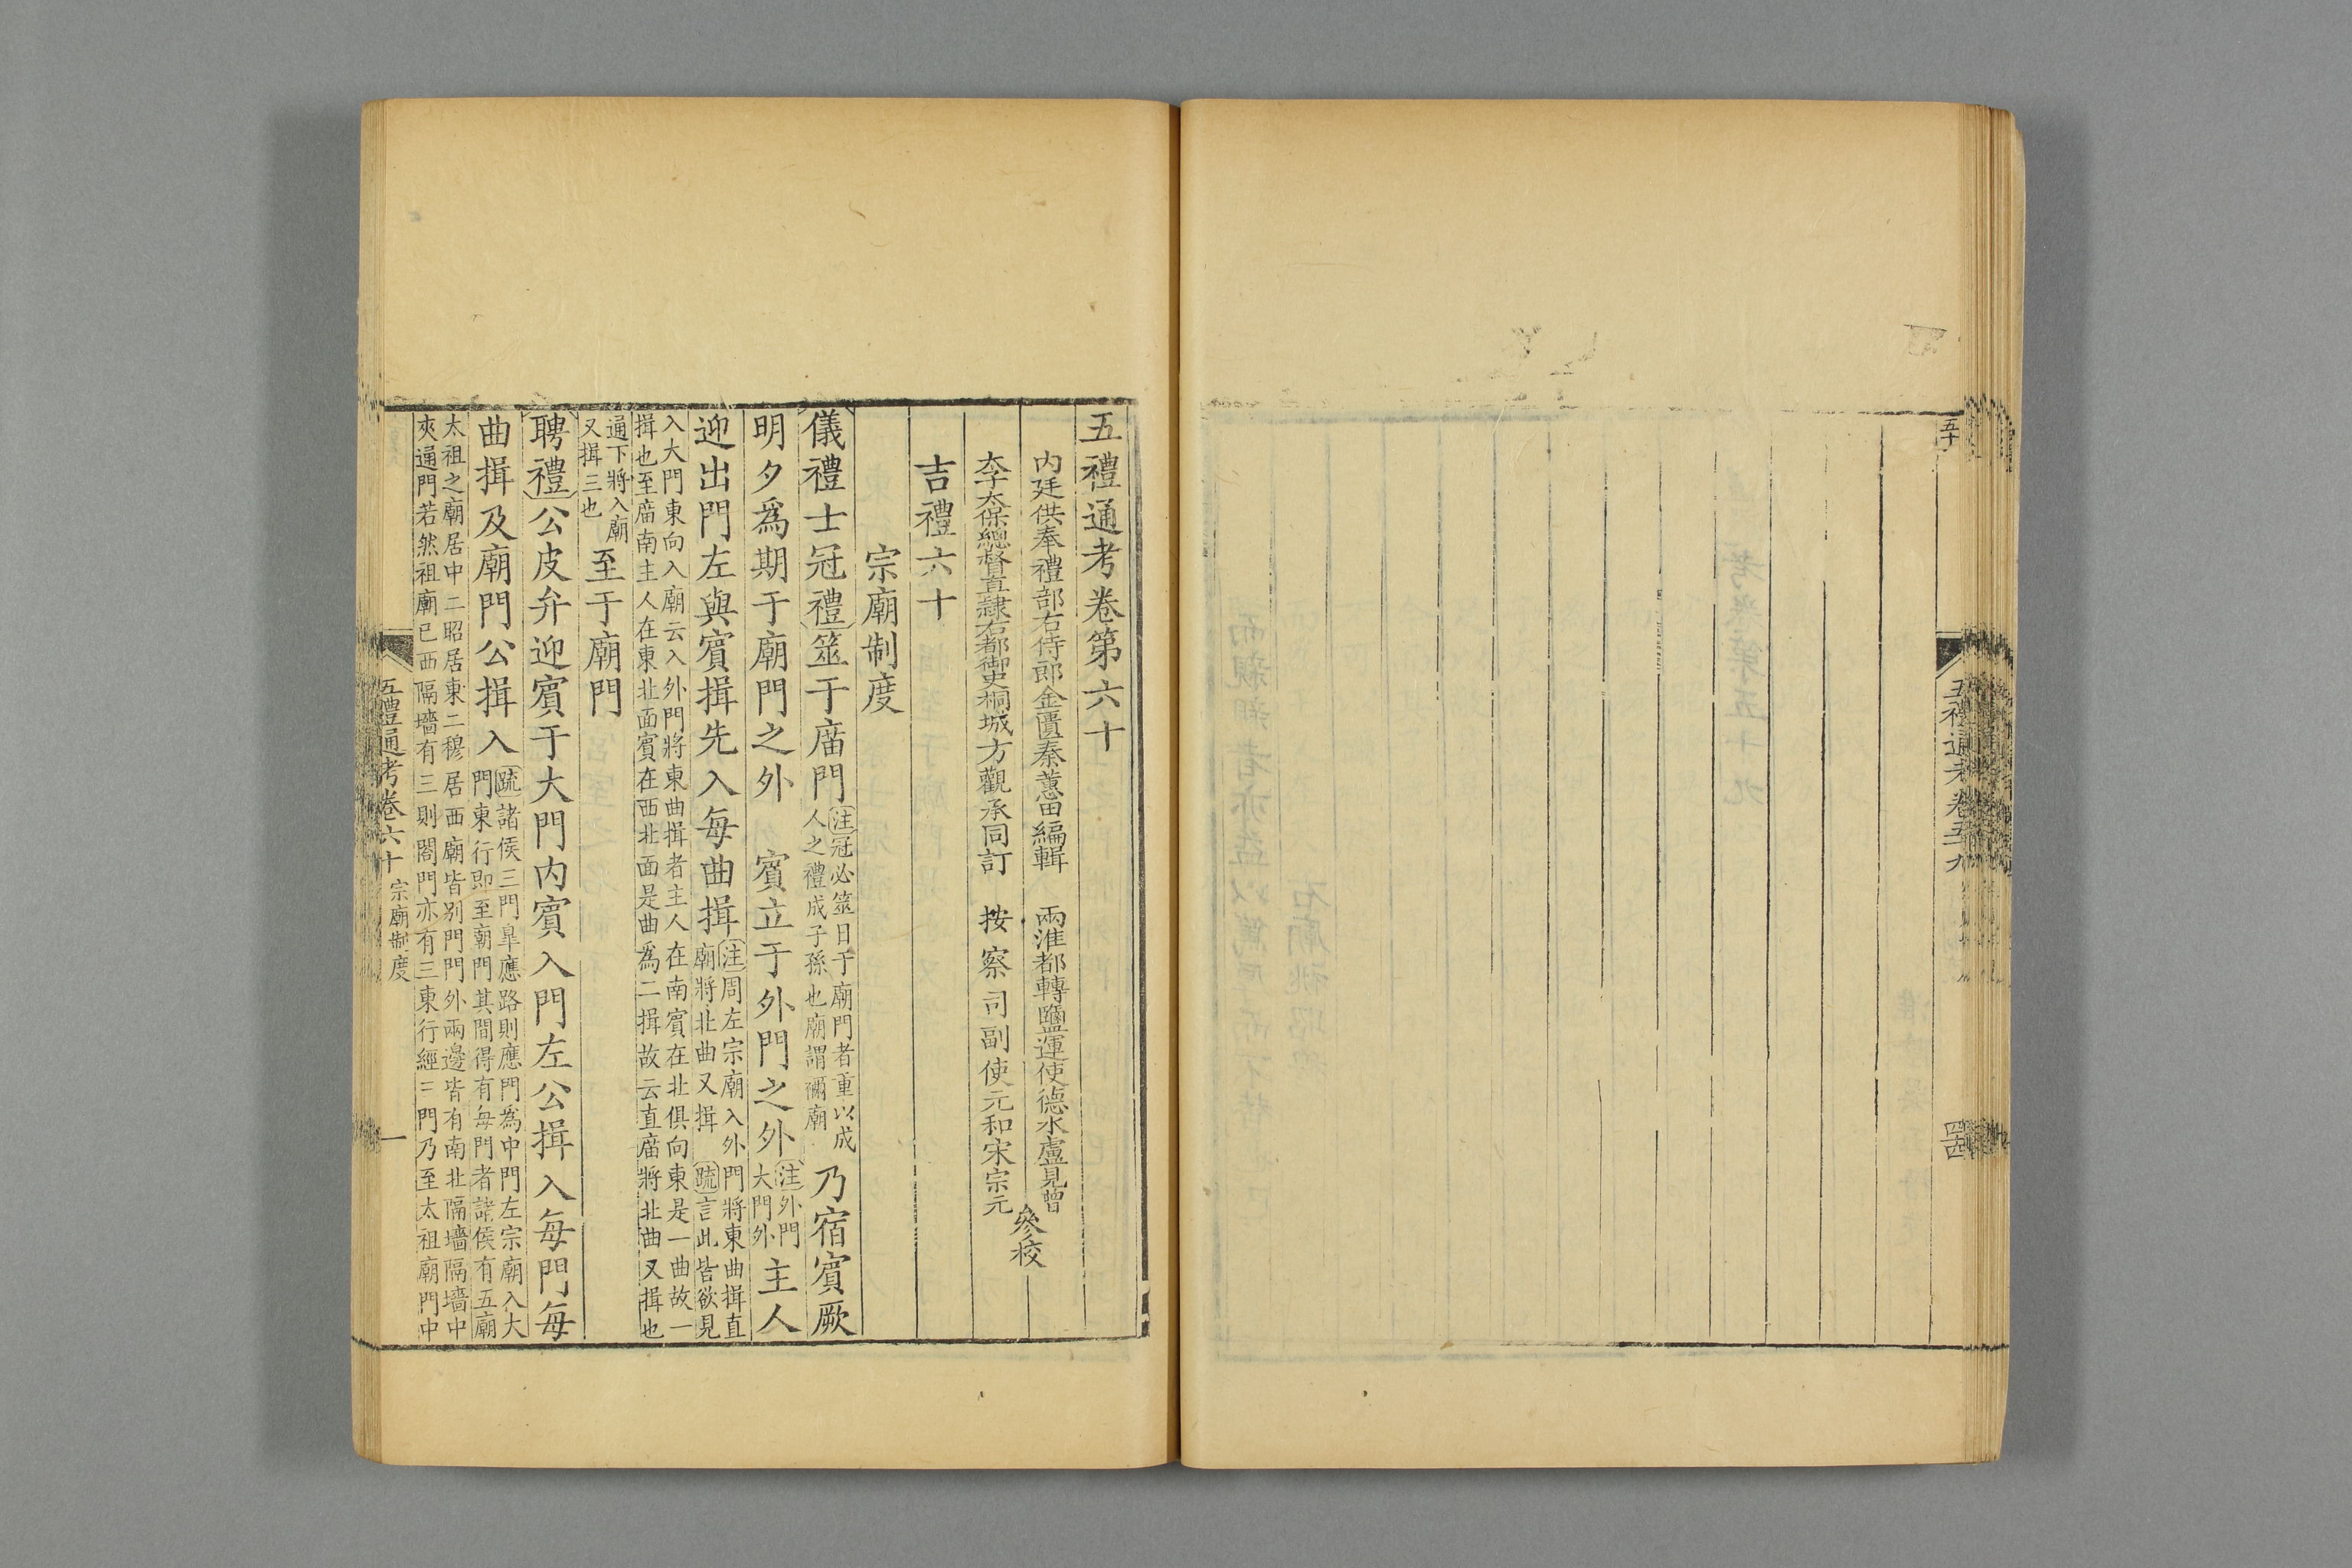 五十
五禮通考卷五九
四四
五禮通考卷第六十
内廷供奉禮部右侍郎金匱秦蕙田編輯　兩淮都轉鹽運使德水盧見曾
李太保總督直隸右都御史桐城方觀承同訂　按察司副使元和宋宗元
參校
吉禮六十
宗廟制度
儀禮士冠禮筮于廟門
注冠必筮日于廟門者重以成
人之禮成子孫也廟謂禰廟
乃宿賓厥
明夕爲期于廟門之外　賓立于外門之外
注外門
大門外
主人
迎出門左與賓揖先入每曲揖
注周左宗廟入外門將東曲揖直
廟將北曲又揖　疏言此皆欲見
入大門東向入廟云入外門將東曲揖者主人在南賓在北俱向東是一曲故一
揖也至廟南主人在東北面賓在西北面是曲爲二揖故云直廟將北曲又揖也
通下將入廟
又揖三也
至于廟門
聘禮公皮弁迎賓于大門内賓入門左公揖入每門每
曲揖及廟門公揖入
疏諸侯三門皐應路則應門爲中門左宗廟入大
門東行即至廟門其間得有每門者諸侯有五廟
太祖之廟居中二昭居東二穆居西廟皆别門門外兩邊皆有南北隔墻隔墻中
夾通門若然祖廟已西隔墻有三則閤門亦有三東行經三門乃至太祖廟門中
五禮通考卷六十　宗廟制度
一